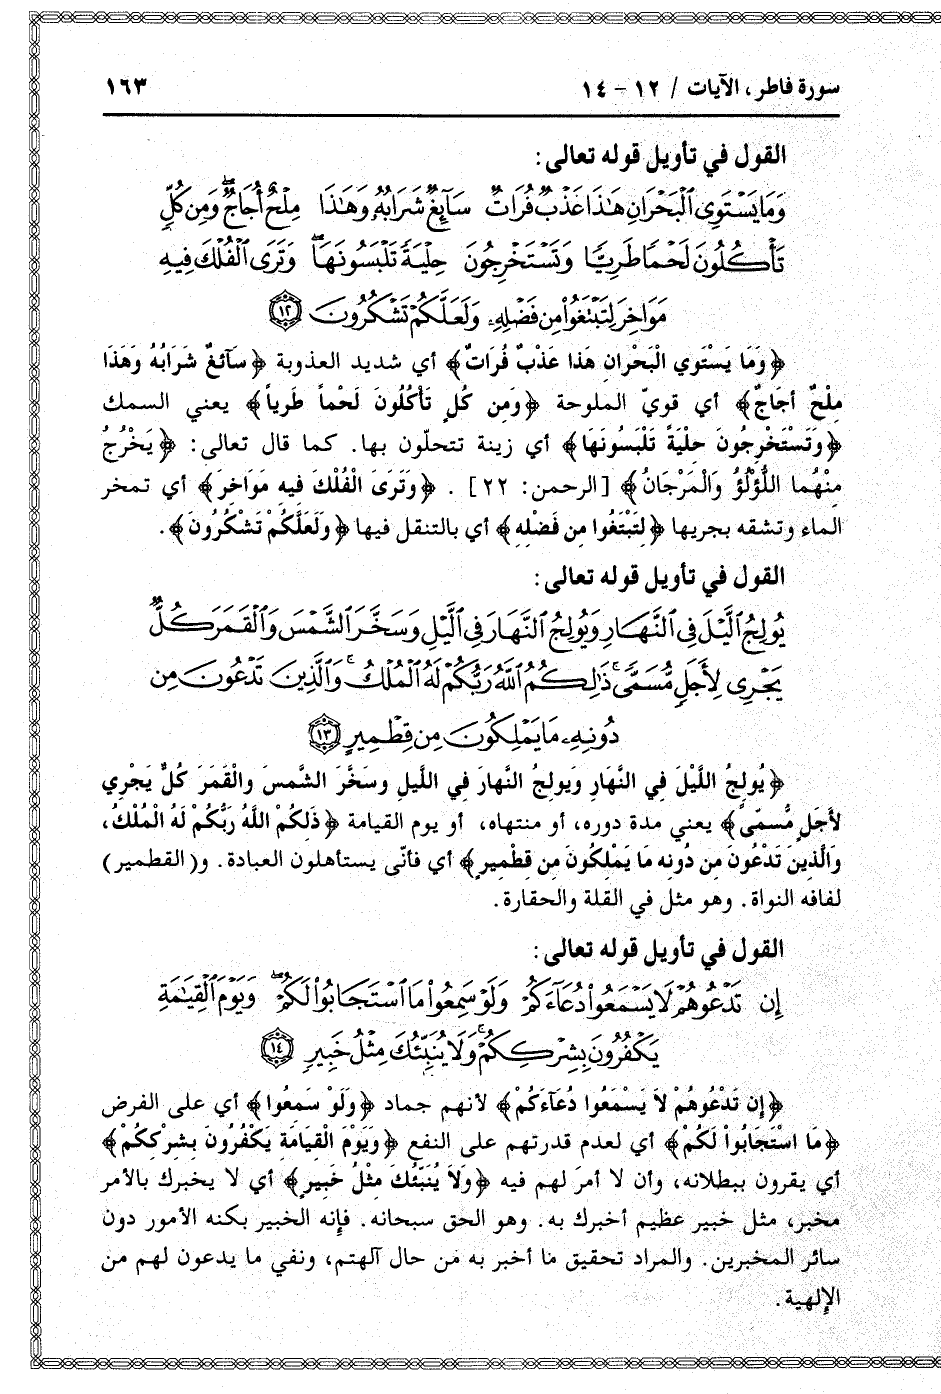 سورة فاطر، الآيات / ١٢ - ١٤
١٦٣
القول في تأويل قوله تعالى:
وَمَا يَسْتَوِي ٱلْبَحْرَانِ هَٰذَا عَذْبٌ فُرَاتٌ سَآئِغٌ شَرَابُهُۥ وَهَٰذَا مِلْحٌ أُجَاجٌ ۖ وَمِن كُلٍّ
تَأْكُلُونَ لَحْمًا طَرِيًّا وَتَسْتَخْرِجُونَ حِلْيَةً تَلْبَسُونَهَا ۖ وَتَرَى ٱلْفُلْكَ فِيهِ
مَوَاخِرَ لِتَبْتَغُوا۟ مِن فَضْلِهِۦ وَلَعَلَّكُمْ تَشْكُرُونَ ١٢
﴿وَمَا يَسْتَوِي الْبَحْرانِ هَذا عَذْبٌ فُرَاتٌ﴾ أي شديد العذوبة ﴿سَآئغٌ شَرَابُهُ وَهَذَا
مِلْحٌ أجَاجٌ﴾ أي قويّ الملوحة ﴿وَمِن كُلٍ تَأْكُلُونَ لَحْماً طَرِياً﴾ يعني السمك
﴿وَتَسْتَخْرِجُونَ حلْيَةً تَلْبَسُونَهَا﴾ أي زينة تتحلّون بها. كما قال تعالى: ﴿يَخْرُجُ
مِنْهُما اللُّؤْلُؤُ وَالْمَرْجَانُ﴾ [الرحمن: ٢٢] . ﴿وَتَرَىَ الْفُلْكَ فيه مَوَاخرَ﴾ أي تمخر
الماء وتشقه بجريها ﴿لتَبْتَغُوا من فَضْله﴾ أي بالتنقل فيها ﴿وَلَعَلَّكُمْ تَشْكُرُونَ﴾.
القول في تأويل قوله تعالى:
يُولِجُ ٱلَّيْلَ فِى ٱلنَّهَارِ وَيُولِجُ ٱلنَّهَارَ فِى ٱلَّيْلِ وَسَخَّرَ ٱلشَّمْسَ وَٱلْقَمَرَ كُلٌّ
يَجْرِى لِأَجَلٍ مُّسَمًّى ۚ ذَٰلِكُمُ ٱللَّهُ رَبُّكُمْ لَهُ ٱلْمُلْكُ ۚ وَٱلَّذِينَ تَدْعُونَ مِن
دُونِهِۦ مَا يَمْلِكُونَ مِن قِطْمِيرٍ ١٣
﴿يُولِجُ اللَّيْلَ فِي النَّهَارِ وَيولِجُ النَّهارَ فِي اللَّيلِ وسَخَّرَ الشَّمسَ والْقَمَرَ كُلٌّ يَجْرِي
لأَجَلٍ مُّسمّىً﴾ يعني مدة دوره، أو منتهاه، أو يوم القيامة ﴿ذَلكُمْ اللَّهُ رَبُّكُمْ لَهُ الْمُلْكُ،
وَالَّذينَ تَدْعُونَ من دُونه مَا يَمْلكُونَ من قطْمير﴾ أي فأنّى يستأهلون العبادة. و(القطمير)
لفافه النواة. وهو مثل في القلة والحقارة.
القول في تأويل قوله تعالى:
إِن تَدْعُوهُمْ لَا يَسْمَعُوا۟ دُعَآءَكُمْ وَلَوْ سَمِعُوا۟ مَا ٱسْتَجَابُوا۟ لَكُمْ ۖ وَيَوْمَ ٱلْقِيَٰمَةِ
يَكْفُرُونَ بِشِرْكِكُمْ ۚ وَلَا يُنَبِّئُكَ مِثْلُ خَبِيرٍ ١٤
﴿إن تَدْعُوهُمْ لاَ يَسْمَعُوا دُعَاءَكُمْ﴾ لأنهم جماد ﴿وَلَوْ سَمعُوا﴾ أي على الفرض
﴿مَا اسْتَجَابُواْ لَكُمْ﴾ أي لعدم قدرتهم على النفع ﴿وَيَوْمَ الْقيَامَة يَكْفُرُونَ بشرْككُمْ﴾
أي يقرون ببطلانه، وأن لا أمرَ لهم فيه ﴿وَلاَ يُنَبِّئُكَ مثْلُ خَبيرٍ﴾ أي لا يخبرك بالأمر
مخبر، مثل خبير عظيم أخبرك به. وهو الحق سبحانه. فإنه الخبير بكنه الأمور دون
سائر المخبرين. والمراد تحقيق ما أخبر به من حال آلهتم، ونفي ما يدعون لهم من
الإلهية.